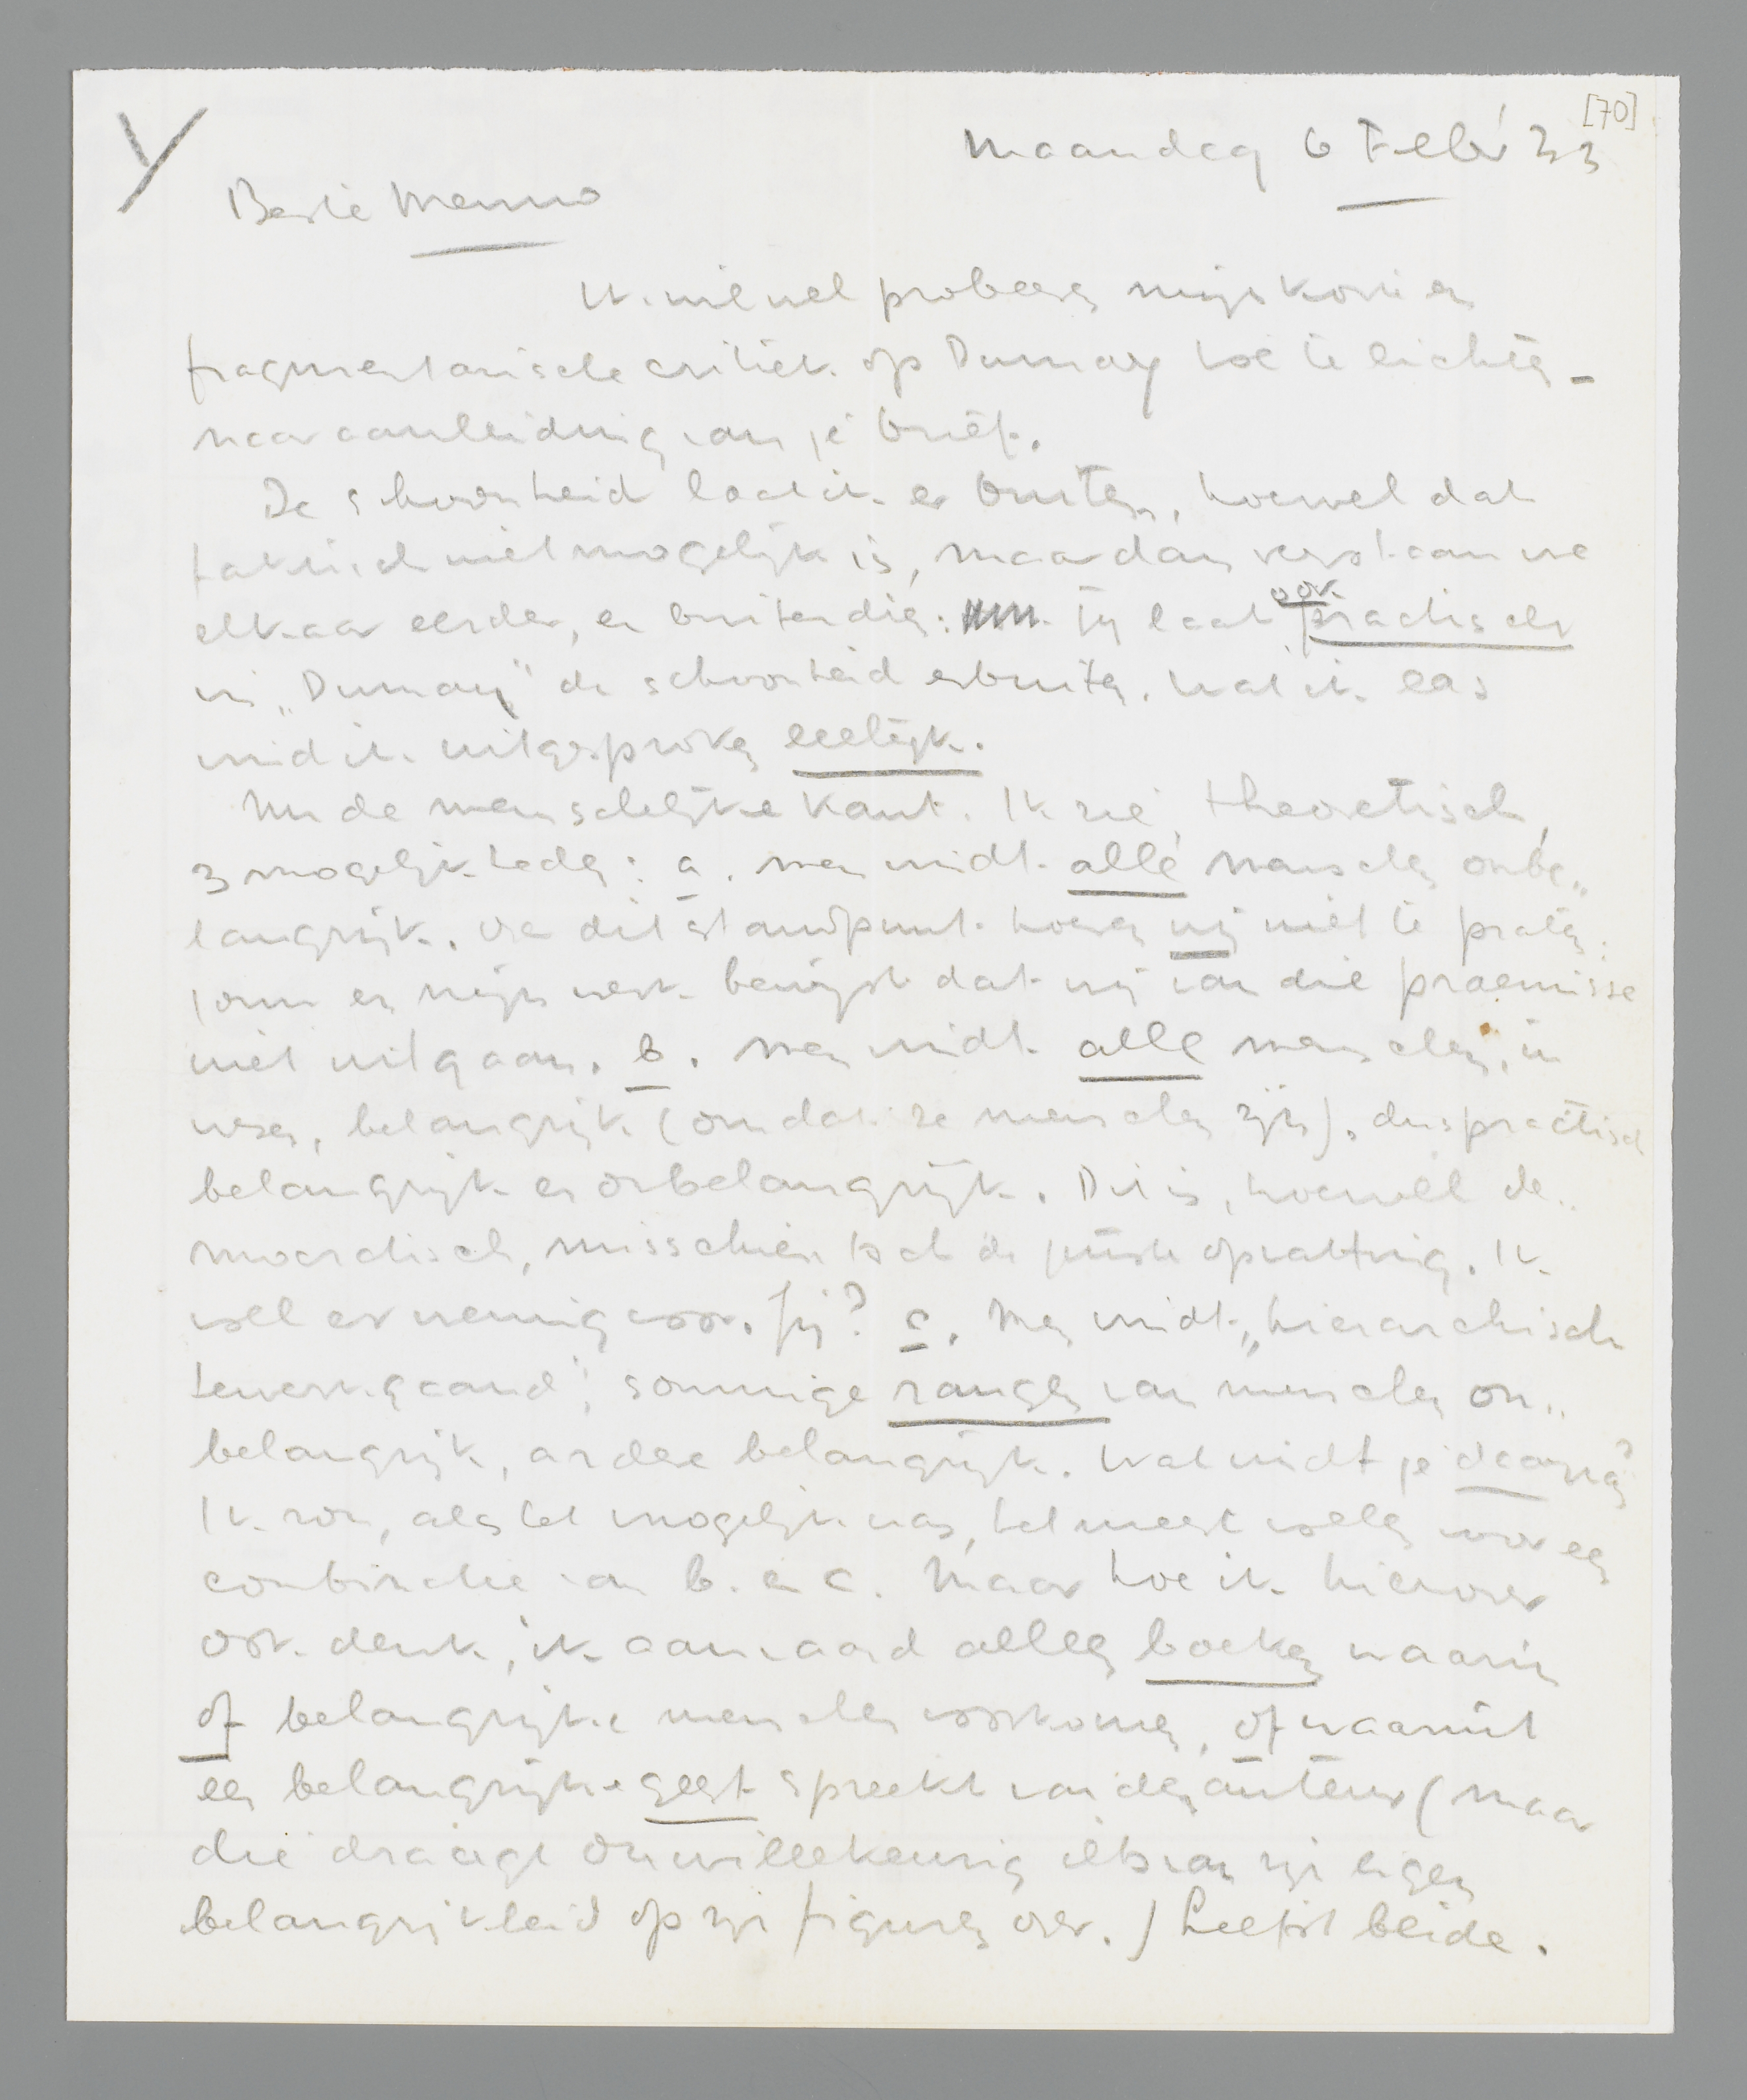 [70]
Maandag 6 Febr 33
Beste Menno
Ik wil wel probeeren mijn korte en
fragmentarische critiek op Dumay toe te lichten –
naar aanleiding van je brief.
De schoonheid laat ik er buiten, hoewel dat
faktisch niet mogelijk is, maar dan verstaan we
elkaar eerder, en buitendien: jij laat ook practisch
in „Dumay" de schoonheid erbuiten. Wat ik las
vind ik uitgesproken leelijk.
Nu de menschelijke kant. Ik zie, theoretisch,
3 mogelijkheden: a. men vindt alle menschen onbe„
langrijk. Over dit standpunt hoeven wij niet te praten:
jouw en mijn werk bewijst dat wij van die praemisse
niet uitgaan. b. men vindt alle menschen, in
wezen, belangrijk (omdat ze menschen zijn), dus practisch
belangrijk en onbelangrijk. Dit is, hoewel de„
moordisch, misschien toch de juiste opvatting. Ik
voel er weinig voor. Jij? c. Men vindt, „hierarchisch
tewerkgaand", sommige rangen van menschen on„
belangrijk, andere belangrijk. Wat vindt je daarvan?
Ik zou, als het mogelijk was, het meest voelen voor een
combinatie van b. en c. Maar hoe ik hierover
ook denk, ik aanvaard alleen boeken waarin
of belangrijke menschen voorkomen, of waaruit
een belangrijke geest spreekt van den auteur (maar
die draagt onwillekeurig iets van zijn eigen
belangrijkheid op zijn figuren over.) Liefst beide.